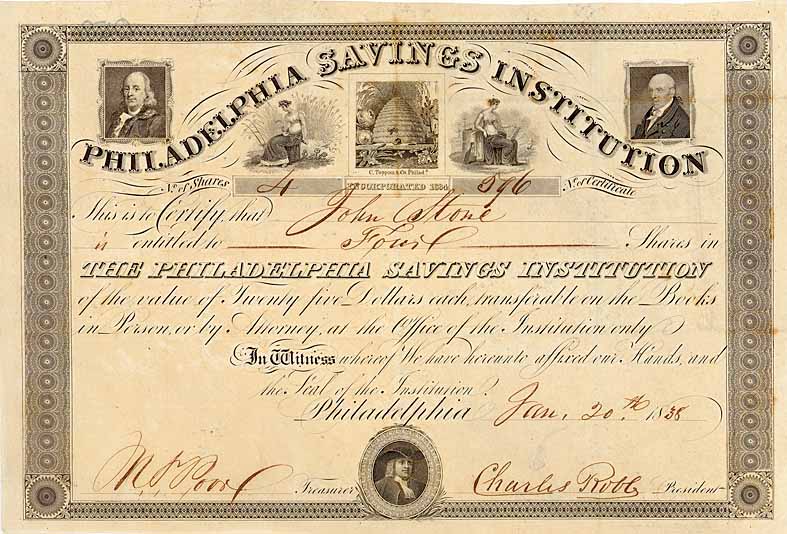 PHILADELPHIA SAVINGS INSTITUTION
C. Toppan & Co. Philad.ª
N.º of Shares 4 INCORPORATED 1834 596 N.º of Certificate
This is to Certify, that John Stone
is entitled to Four Shares in
THE PHILADELPHIA SAVINGS INSTITUTION
of the value of Twenty five Dollars each, transferable on the Books
in Person, or by Attorney, at the Office of the Institution only
In Witness whereof We have hereunto affixed our Hands, and
the Seal of the Institution.
Philadelphia Jan. 20th 1838
Treasurer Charles Robb President